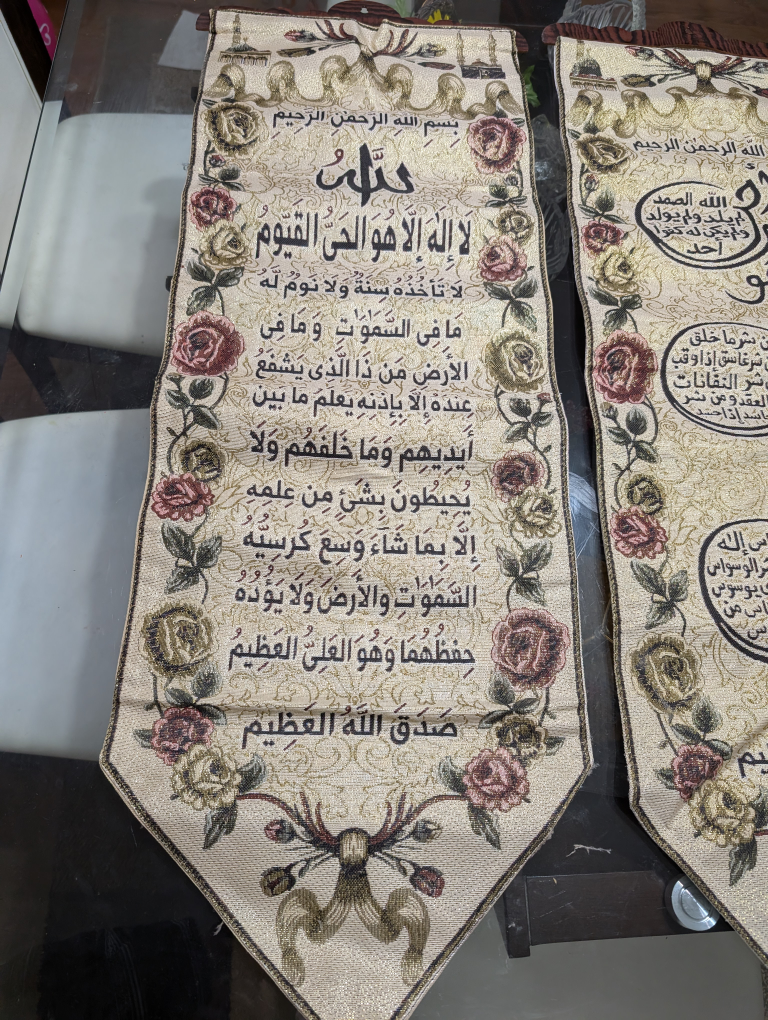 بِسْمِ اللهِ الرَّحْمٰنِ الرَّحِيْمِ
اللّٰه
لَا إِلٰهَ إِلَّا هُوَ الْحَىُّ الْقَيُّومُ
لَا تَأْخُذُهُ سِنَةٌ وَلَا نَوْمٌ لَهُ
مَا فِى السَّمٰوَاتِ وَمَا فِى
الأَرْضِ مَن ذَا الَّذِى يَشْفَعُ
عِندَهُ إِلَّا بِإِذْنِهِ يَعْلَمُ مَا بَيْنَ
أَيْدِيهِمْ وَمَا خَلْفَهُمْ وَلَا
يُحِيطُونَ بِشَىْءٍ مِنْ عِلْمِهِ
إِلَّا بِمَا شَاءَ وَسِعَ كُرْسِيُّهُ
السَّمٰوَاتِ وَالأَرْضَ وَلَا يَؤُدُهُ
حِفْظُهُمَا وَهُوَ الْعَلِىُّ الْعَظِيمُ
صَدَقَ اللّٰهُ الْعَظِيمُ
اللّٰه الرحمن الرحيم
الله الصمد
لم يلد ولم يولد
ولم يكن له كفوا
أحد
شر ما خلق
شر غاسق إذا وقب
شر النفاثات
العقد ومن شر
حاسد إذا حسد
إله
الوسواس
يوسوس
من